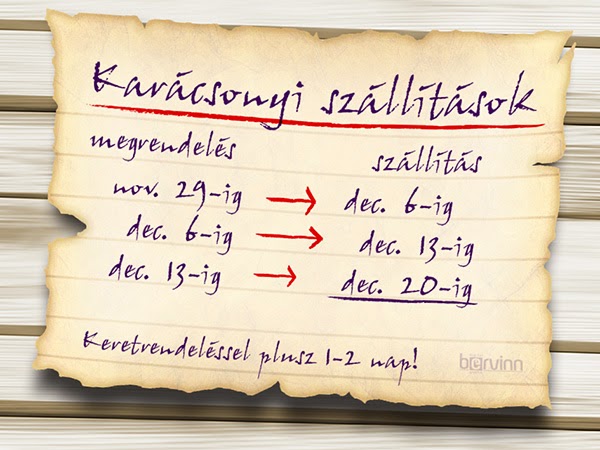 Karácsonyi szállítások
megrendelés szállítás
nov. 29-ig → dec. 6-ig
dec. 6-ig → dec. 13-ig
dec. 13-ig → dec. 20-ig
Keretrendeléssel plusz 1-2 nap!
bervinn